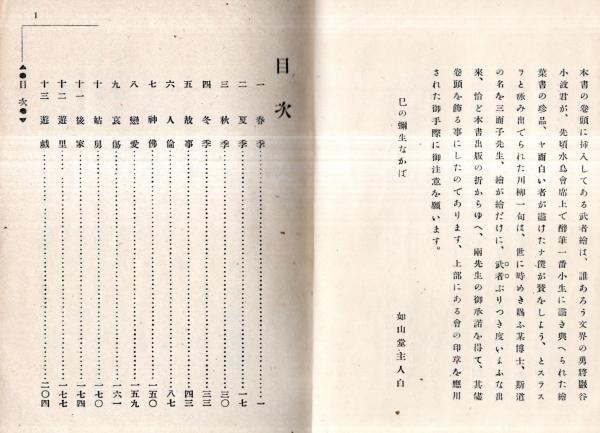 本書の卷頭に挿入してある武者繪は、誰あろう文界の勇將巖谷
小波君が、先頃水鳥會席上で醉華一番小生に畵き與へられた繪
葉書の珍品、ヤ面白い者が畵けたナ僕が賛をしよう、とスラス
ラと咏み出でられた川柳一句は、世に時めき賜ふ某博士、斯道
の名を三面子先生、繪が繪だけに、武者ぶりつき度いよふな出
來、恰ど本書出版の折からゆへ、兩先生の御承諾を得て、其儘
卷頭を飾る事にしたのであります、上部にある會の印章を應用
された御手際に御注意を願います。
巳の彌生なかば
如山堂主人白
1
目次
目次
一 春季 一
二 夏季 一七
三 秋季 三〇
四 冬季 三三
五 故事 四三
六 人倫 八七
七 神佛 一五〇
八 戀愛 一五九
九 哀傷 一六一
十 姑舅 一七〇
十一 後家 一七四
十二 遊里 一七七
十三 遊戲 二〇四